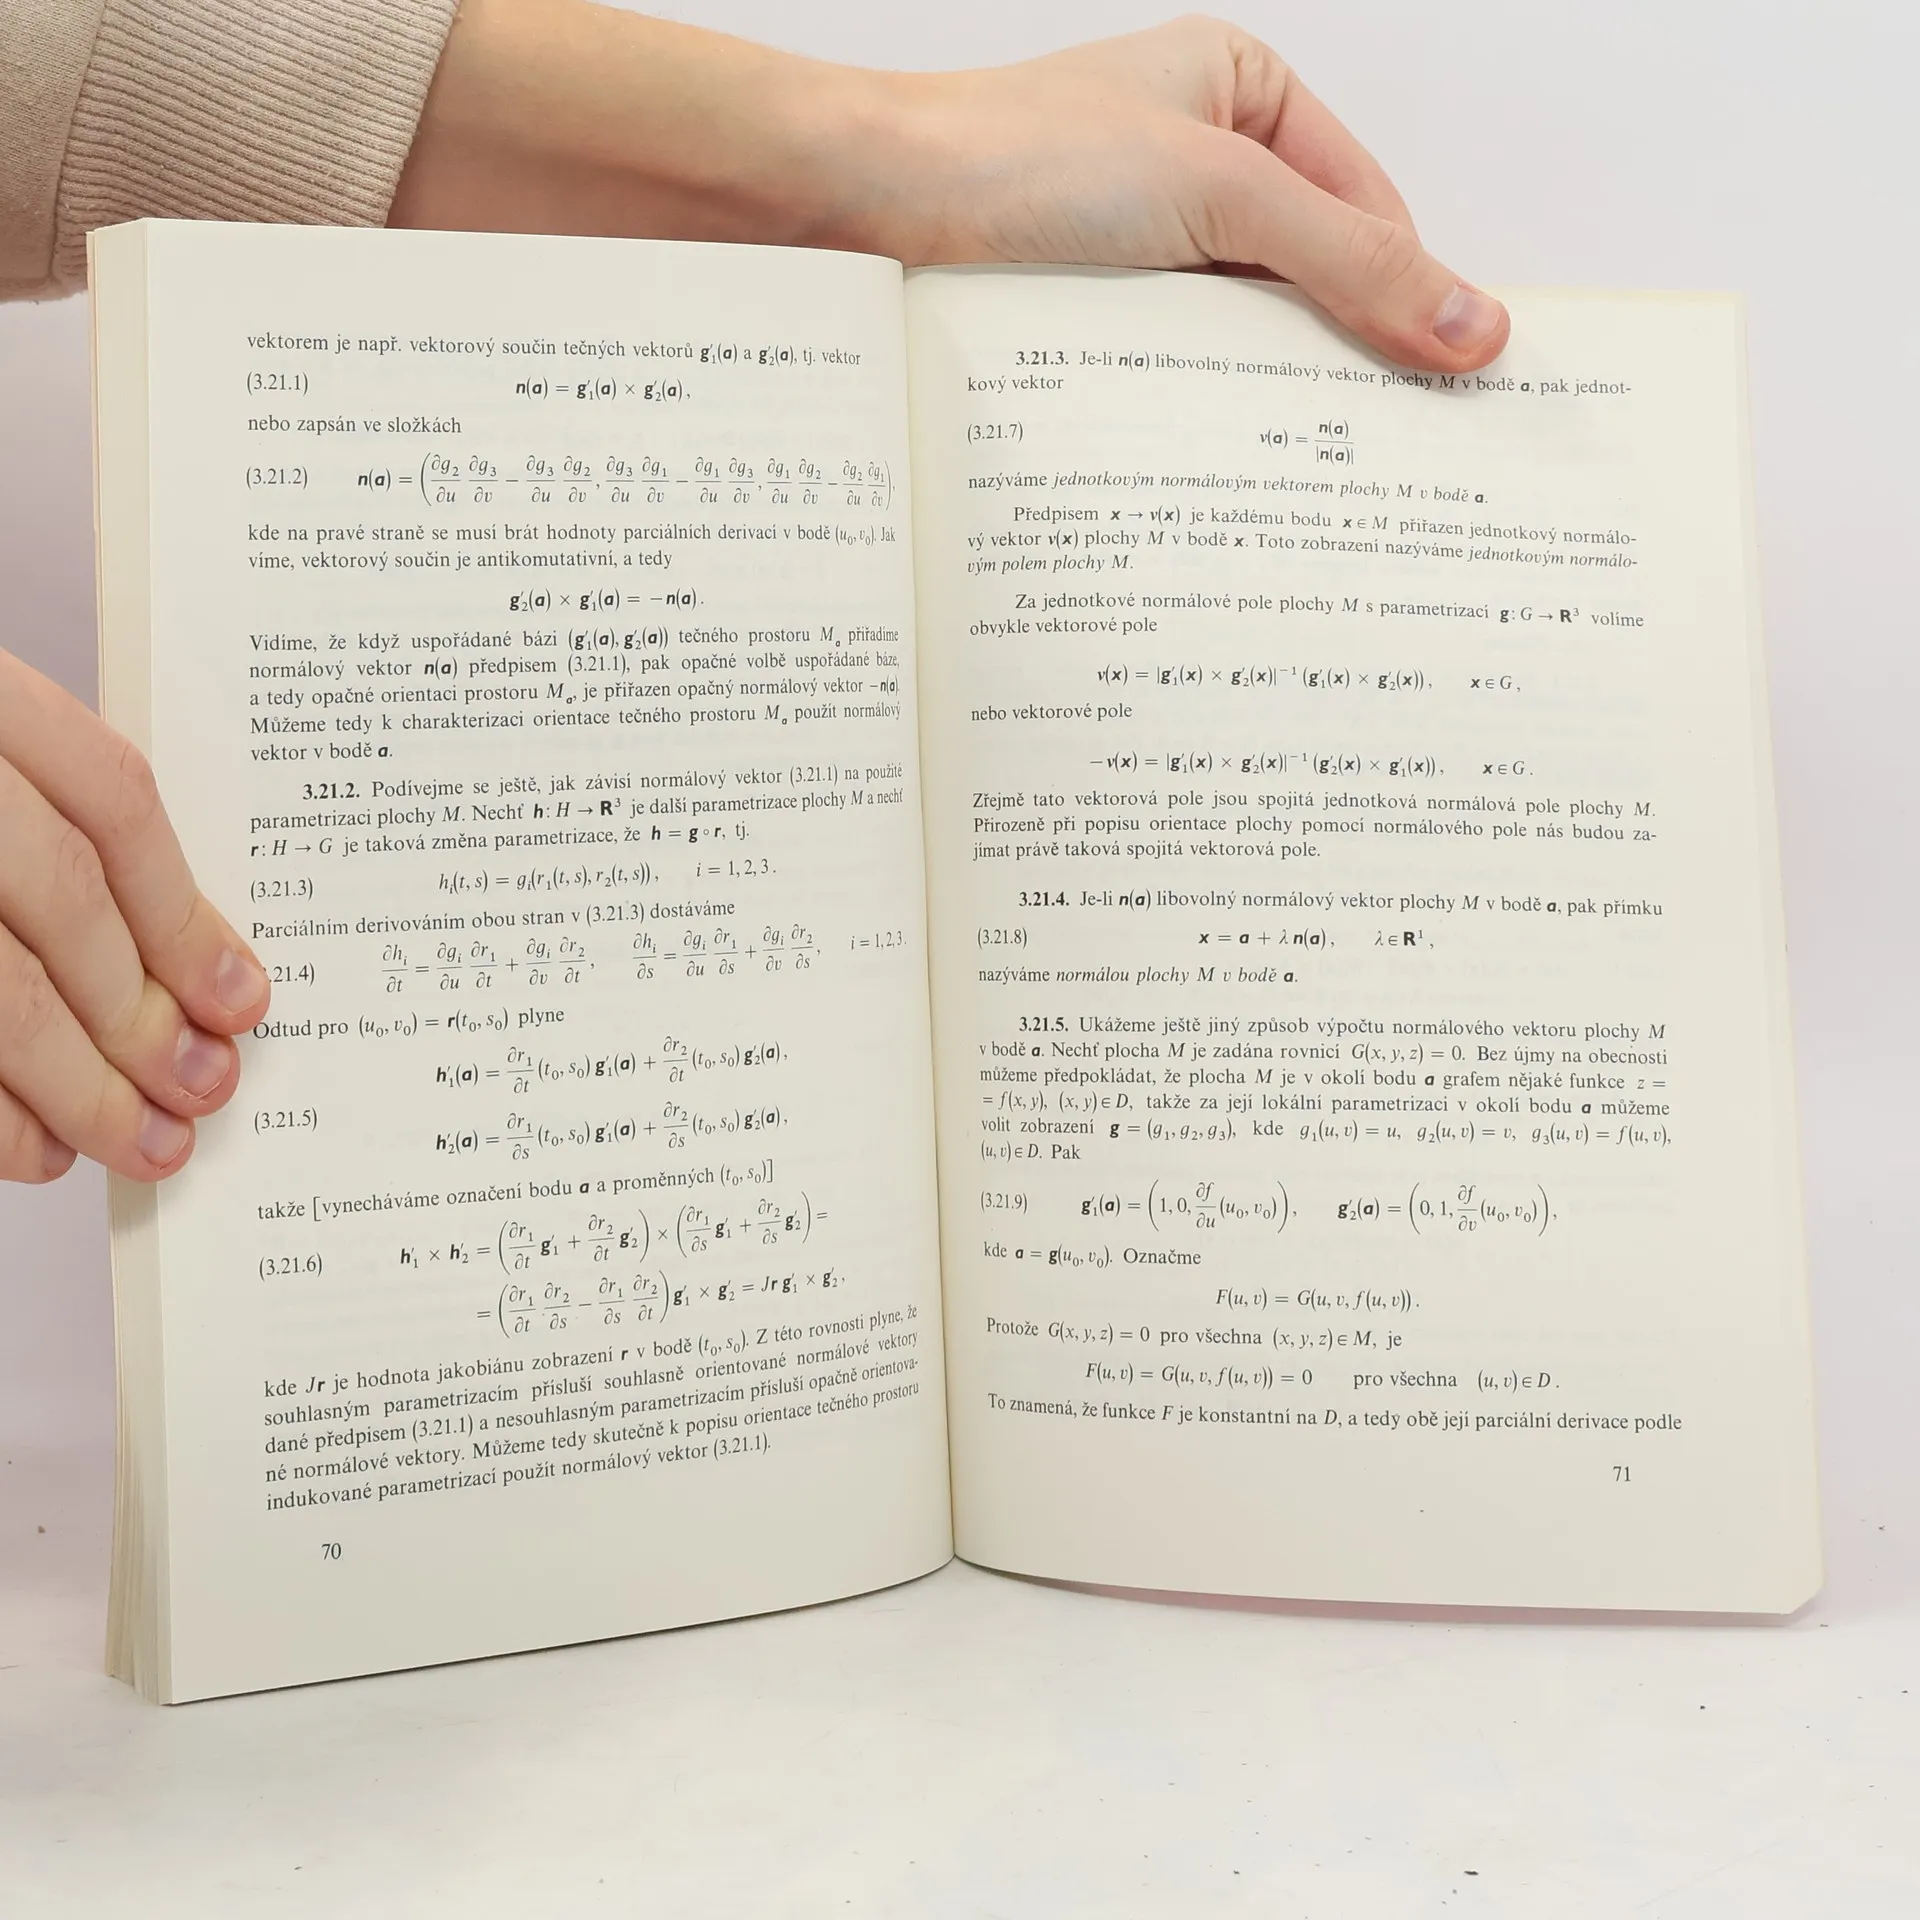 vektorem je např. vektorový součin tečných vektorů g′₁(a) a g′₂(a), tj. vektor
(3.21.1) n(a) = g′₁(a) × g′₂(a),
nebo zapsán ve složkách
(3.21.2) n(a) = (∂g₂/∂u ∂g₃/∂v − ∂g₃/∂u ∂g₂/∂v, ∂g₃/∂u ∂g₁/∂v − ∂g₁/∂u ∂g₃/∂v, ∂g₁/∂u ∂g₂/∂v − ∂g₂/∂u ∂g₁/∂v),
kde na pravé straně se musí brát hodnoty parciálních derivací v bodě (u₀, v₀). Jak
víme, vektorový součin je antikomutativní, a tedy
g′₂(a) × g′₁(a) = −n(a).
Vidíme, že když uspořádané bázi (g′₁(a), g′₂(a)) tečného prostoru Mₐ přiřadíme
normálový vektor n(a) předpisem (3.21.1), pak opačné volbě uspořádané báze,
a tedy opačné orientaci prostoru Mₐ, je přiřazen opačný normálový vektor −n(a).
Můžeme tedy k charakterizaci orientace tečného prostoru Mₐ použít normálový
vektor v bodě a.
3.21.2. Podívejme se ještě, jak závisí normálový vektor (3.21.1) na použité
parametrizaci plochy M. Nechť h: H → R³ je další parametrizace plochy M a nechť
r: H → G je taková změna parametrizace, že h = g ∘ r, tj.
(3.21.3) hᵢ(t, s) = gᵢ(r₁(t, s), r₂(t, s)), i = 1, 2, 3.
Parciálním derivováním obou stran v (3.21.3) dostáváme
.21.4) ∂hᵢ/∂t = ∂gᵢ/∂u ∂r₁/∂t + ∂gᵢ/∂v ∂r₂/∂t, ∂hᵢ/∂s = ∂gᵢ/∂u ∂r₁/∂s + ∂gᵢ/∂v ∂r₂/∂s, i = 1,2,3.
Odtud pro (u₀, v₀) = r(t₀, s₀) plyne
h′₁(a) = ∂r₁/∂t (t₀, s₀) g′₁(a) + ∂r₂/∂t (t₀, s₀) g′₂(a),
(3.21.5)
h′₂(a) = ∂r₁/∂s (t₀, s₀) g′₁(a) + ∂r₂/∂s (t₀, s₀) g′₂(a),
takže [vynecháváme označení bodu a a proměnných (t₀, s₀)]
(3.21.6) h′₁ × h′₂ = (∂r₁/∂t g′₁ + ∂r₂/∂t g′₂) × (∂r₁/∂s g′₁ + ∂r₂/∂s g′₂) =
= (∂r₁/∂t ∂r₂/∂s − ∂r₁/∂s ∂r₂/∂t) g′₁ × g′₂ = Jr g′₁ × g′₂,
kde Jr je hodnota jakobiánu zobrazení r v bodě (t₀, s₀). Z této rovnosti plyne, že
souhlasným parametrizacím přísluší souhlasně orientované normálové vektory
dané předpisem (3.21.1) a nesouhlasným parametrizacím přísluší opačně orientova-
né normálové vektory. Můžeme tedy skutečně k popisu orientace tečného prostoru
indukované parametrizací použít normálový vektor (3.21.1).
70
3.21.3. Je-li n(a) libovolný normálový vektor plochy M v bodě a, pak jednot-
kový vektor
(3.21.7) ν(a) = n(a)/|n(a)|
nazýváme jednotkovým normálovým vektorem plochy M v bodě a.
Předpisem x → ν(x) je každému bodu x ∈ M přiřazen jednotkový normálo-
vý vektor ν(x) plochy M v bodě x. Toto zobrazení nazýváme jednotkovým normálo-
vým polem plochy M.
Za jednotkové normálové pole plochy M s parametrizací g: G → R³ volíme
obvykle vektorové pole
ν(x) = |g′₁(x) × g′₂(x)|⁻¹ (g′₁(x) × g′₂(x)), x ∈ G,
nebo vektorové pole
−ν(x) = |g′₁(x) × g′₂(x)|⁻¹ (g′₂(x) × g′₁(x)), x ∈ G.
Zřejmě tato vektorová pole jsou spojitá jednotková normálová pole plochy M.
Přirozeně při popisu orientace plochy pomocí normálového pole nás budou za-
jímat právě taková spojitá vektorová pole.
3.21.4. Je-li n(a) libovolný normálový vektor plochy M v bodě a, pak přímku
(3.21.8) x = a + λ n(a), λ ∈ R¹,
nazýváme normálou plochy M v bodě a.
3.21.5. Ukážeme ještě jiný způsob výpočtu normálového vektoru plochy M
v bodě a. Nechť plocha M je zadána rovnicí G(x, y, z) = 0. Bez újmy na obecnosti
můžeme předpokládat, že plocha M je v okolí bodu a grafem nějaké funkce z =
= f(x, y), (x, y) ∈ D, takže za její lokální parametrizaci v okolí bodu a můžeme
volit zobrazení g = (g₁, g₂, g₃), kde g₁(u, v) = u, g₂(u, v) = v, g₃(u, v) = f(u, v),
(u, v) ∈ D. Pak
(3.21.9) g′₁(a) = (1, 0, ∂f/∂u (u₀, v₀)), g′₂(a) = (0, 1, ∂f/∂v (u₀, v₀)),
kde a = g(u₀, v₀). Označme
F(u, v) = G(u, v, f(u, v)).
Protože G(x, y, z) = 0 pro všechna (x, y, z) ∈ M, je
F(u, v) = G(u, v, f(u, v)) = 0 pro všechna (u, v) ∈ D.
To znamená, že funkce F je konstantní na D, a tedy obě její parciální derivace podle
71